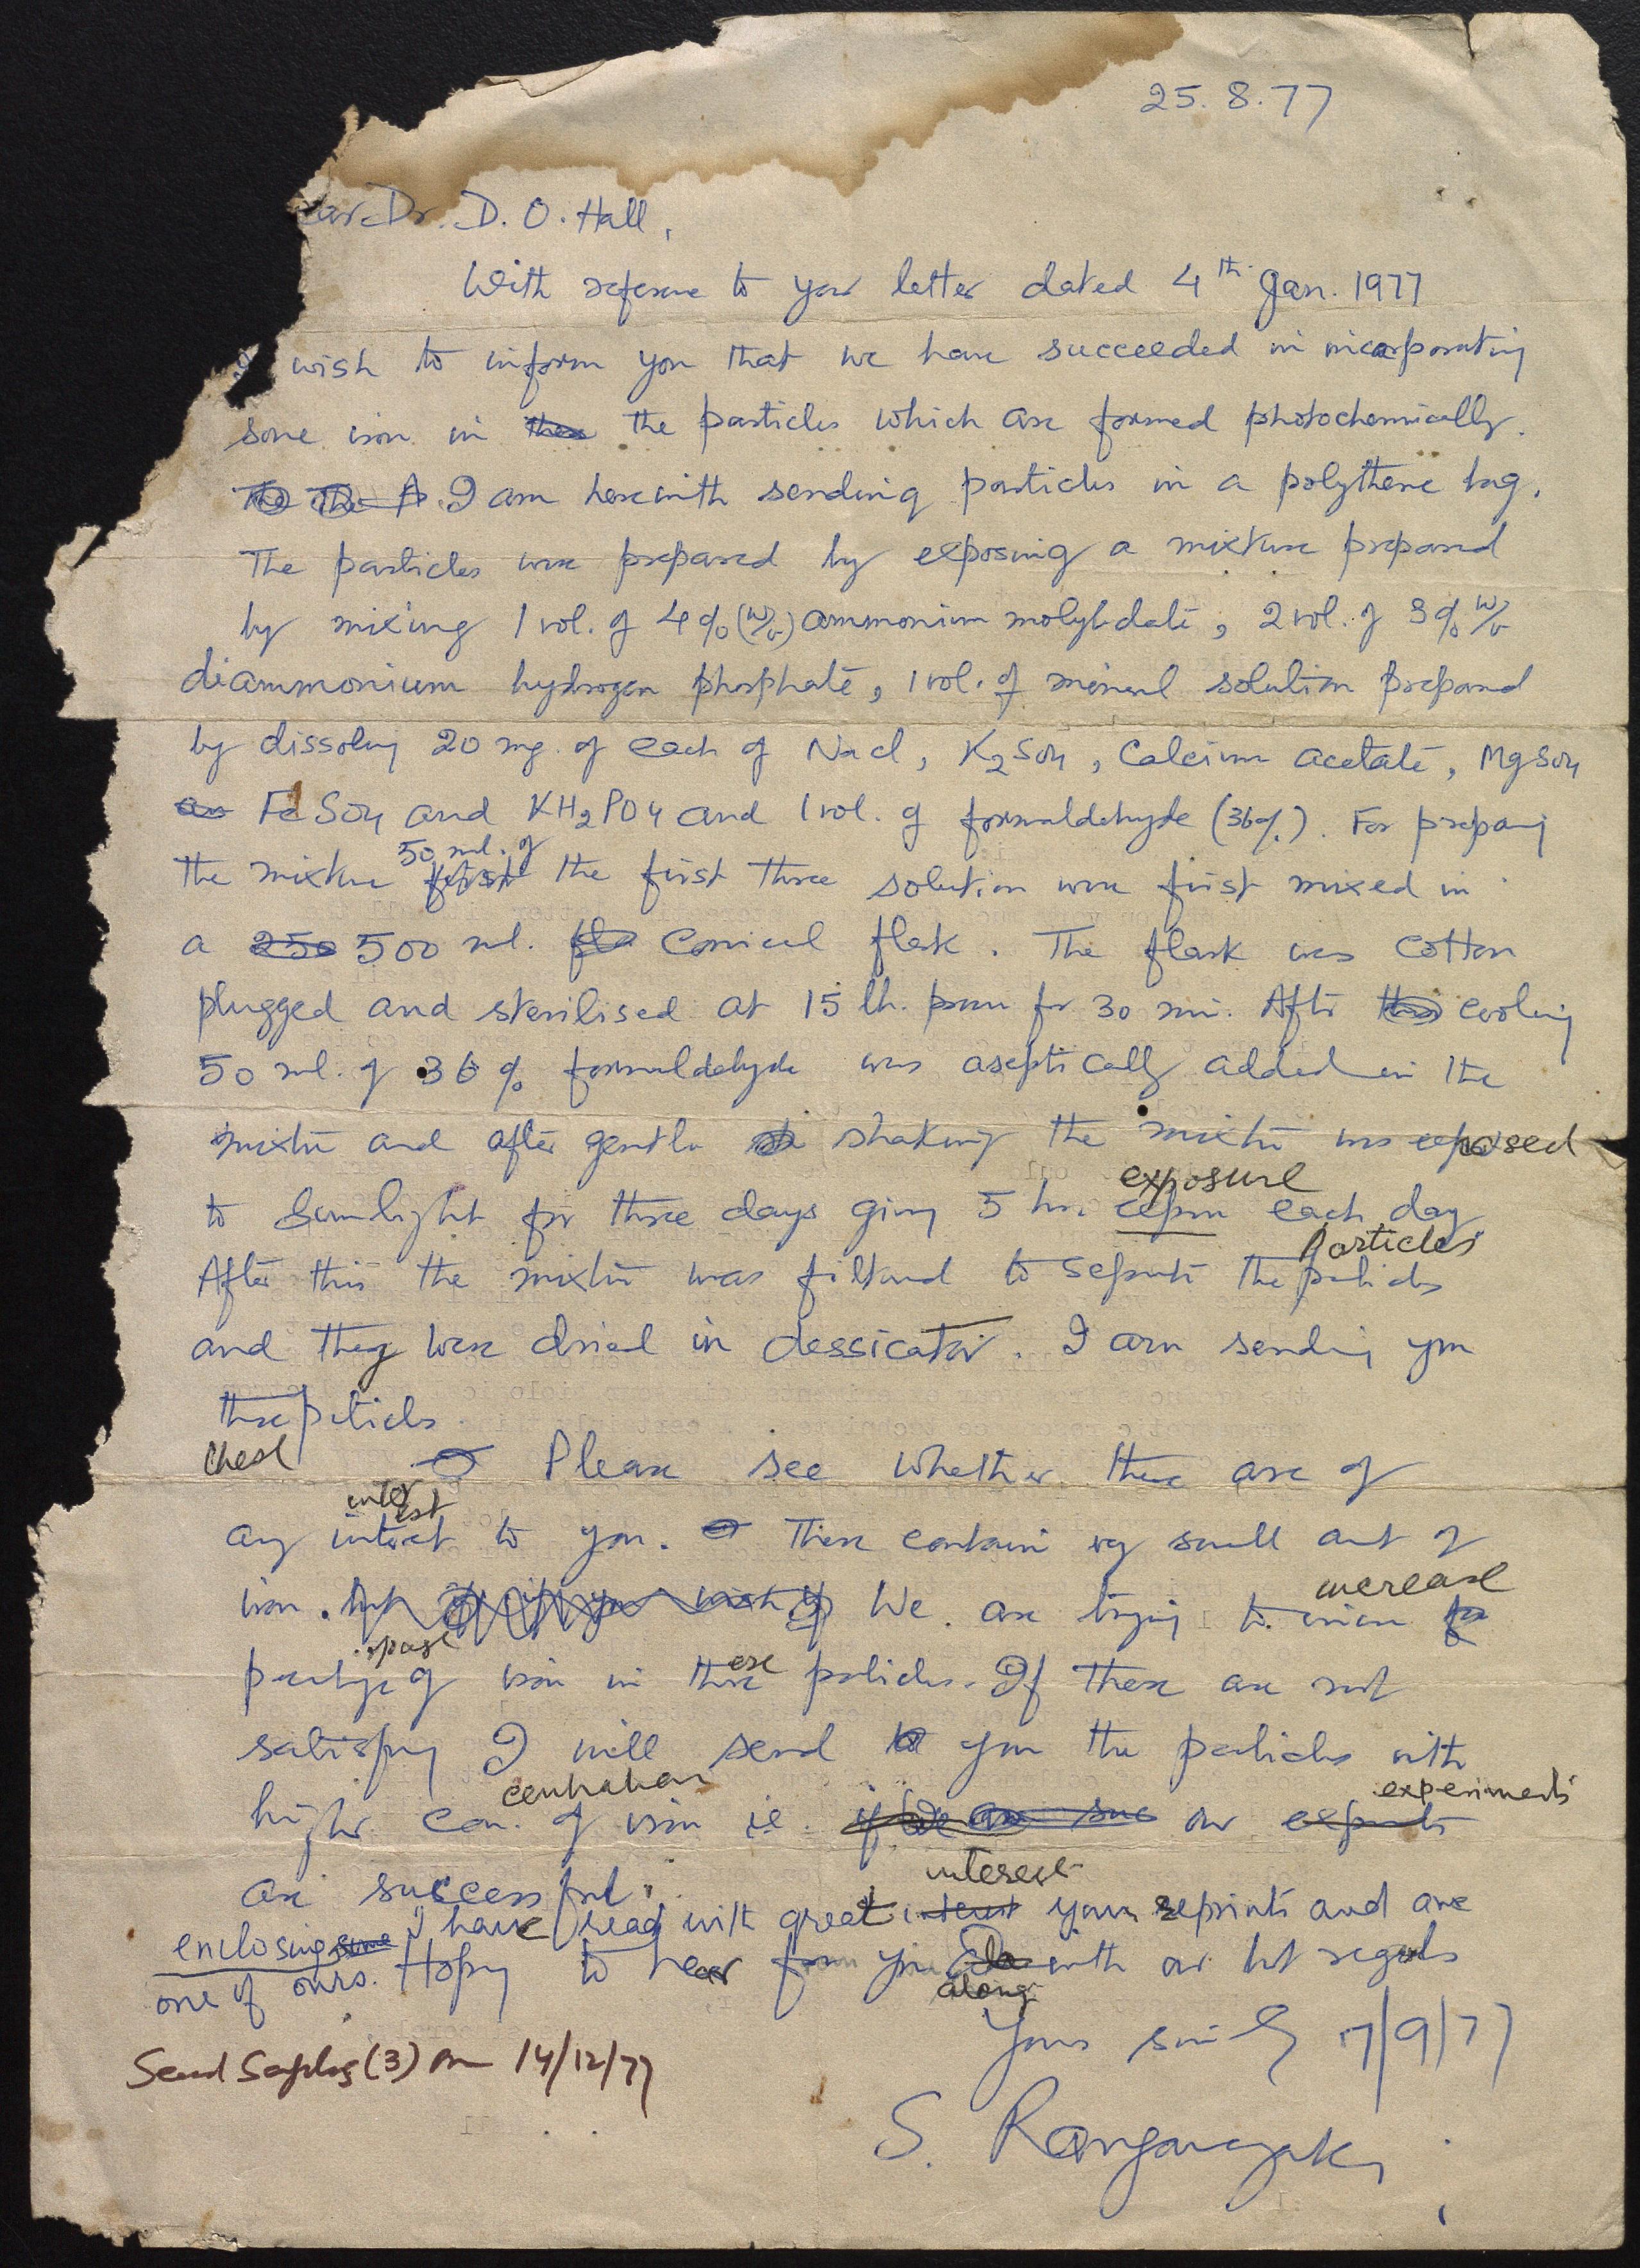 25.8.77
Dear Dr. D. O. Hall,
With reference to your letter dated 4th Jan. 1977
I wish to inform you that we have succeeded in incorporating
some iron in the particles which are formed photochemically.
I am herewith sending particles in a polythene bag.
The particles were prepared by exposing a mixture prepared
by mixing 1 vol. of 4% (w/v) ammonium molybdate, 2 vol. of 3% w/v
diammonium hydrogen phosphate, 1 vol. of mineral solution prepared
by dissolving 20 mg. of each of NaCl, K2SO4, Calcium acetate, MgSO4
FeSO4 and KH2PO4 and 1 vol. of formaldehyde (36%). For preparing
50 ml. of
the mixture the first three solution were first mixed in
a 500 ml. Conical flask. The flask was cotton
plugged and sterilised at 15 lb. pressure for 30 min. After cooling
50 ml. of 36% formaldehyde was aseptically added in the
mixture and after gentle shaking the mixture was exposed
exposure
to Sunlight for three days giving 5 hrs each day
particles
After this the mixture was filtered to separate the particles
and they were dried in dessicator. I am sending you
these particles.
these
Please see whether these are of
interest
any interest to you. These contain very small amt of
increase
iron. We are trying to increase
percentage of iron in these particles. If these are not
ese
satisfying I will send you the particles with
concentration experiments
higher con. of iron ie. our
are successful.
interest
I have read with great your reprints and are
enclosing
one of ours. Hoping to hear from you with our best regards
along
Yours sincerely 17/9/77
Send Samples (3) on 14/12/77
S. Ranganayaki